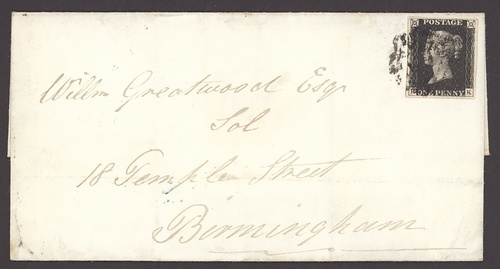 POSTAGE
ONE PENNY
Willm Greatwood Esqr
Sol
18 Temple Street
Birmingham